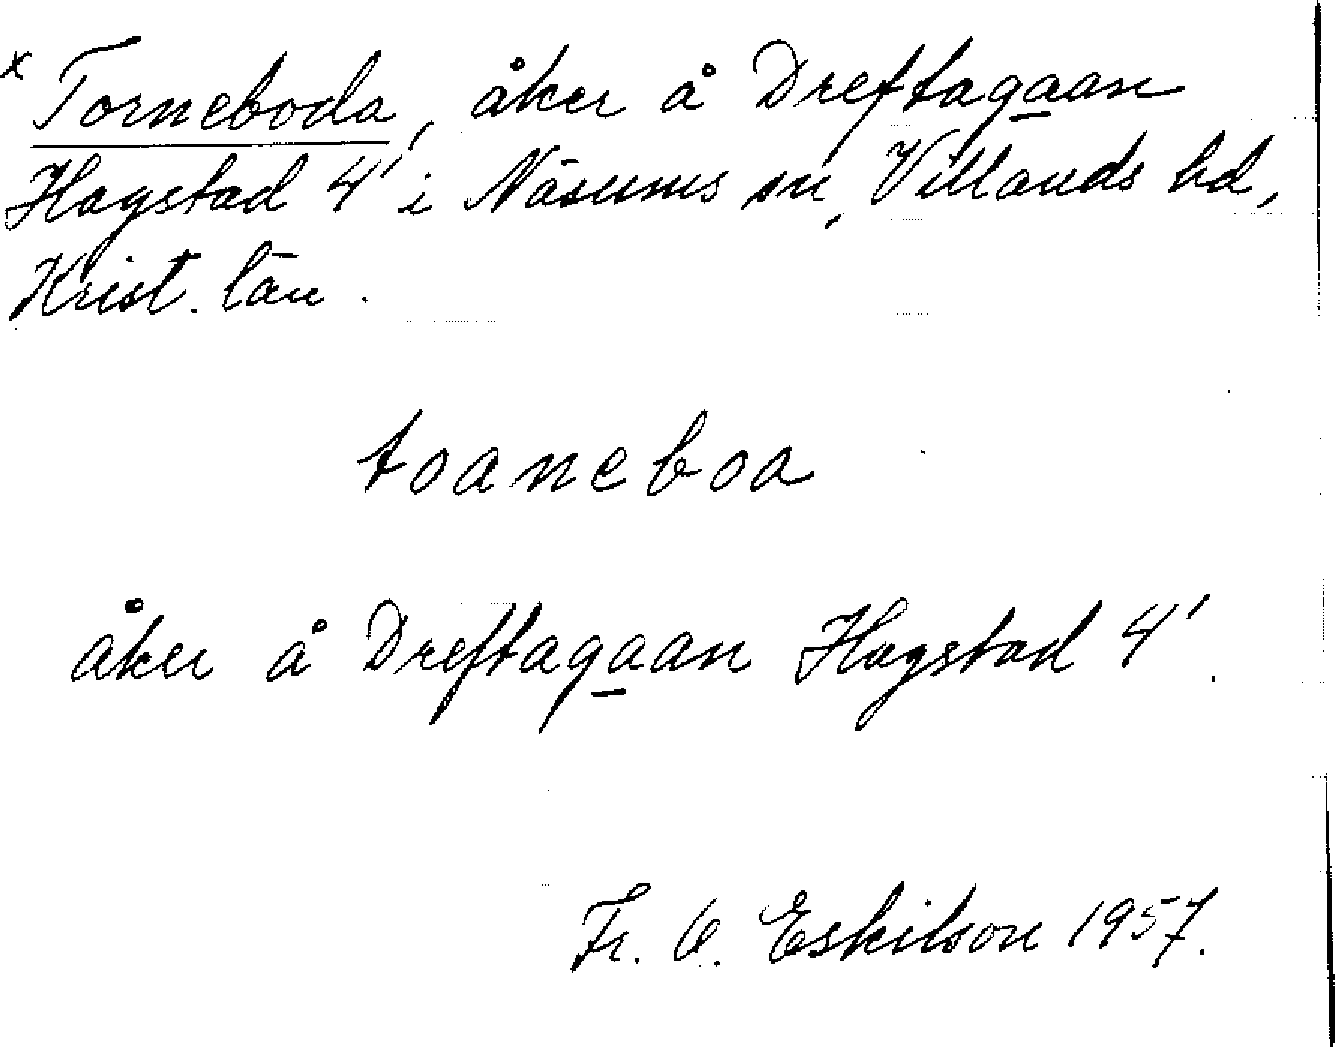 x Torneboda, åker å Dreftagaan
Hagstad 4' i Näsums sn, Villands hd,
Krist. län.
toaneboa
åker å Dreftagaan Hagstad 4'.
Fr. O. Eskilson 1957.